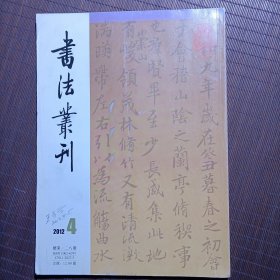 书法叢刊
2012
4
九年歲在癸丑暮春之初會
會稽山陰之蘭亭脩稧事
也羣賢畢至少長咸集此地
崇山
有峻領茂林脩竹又有清流激
湍暎帶左右引以為流觴曲水